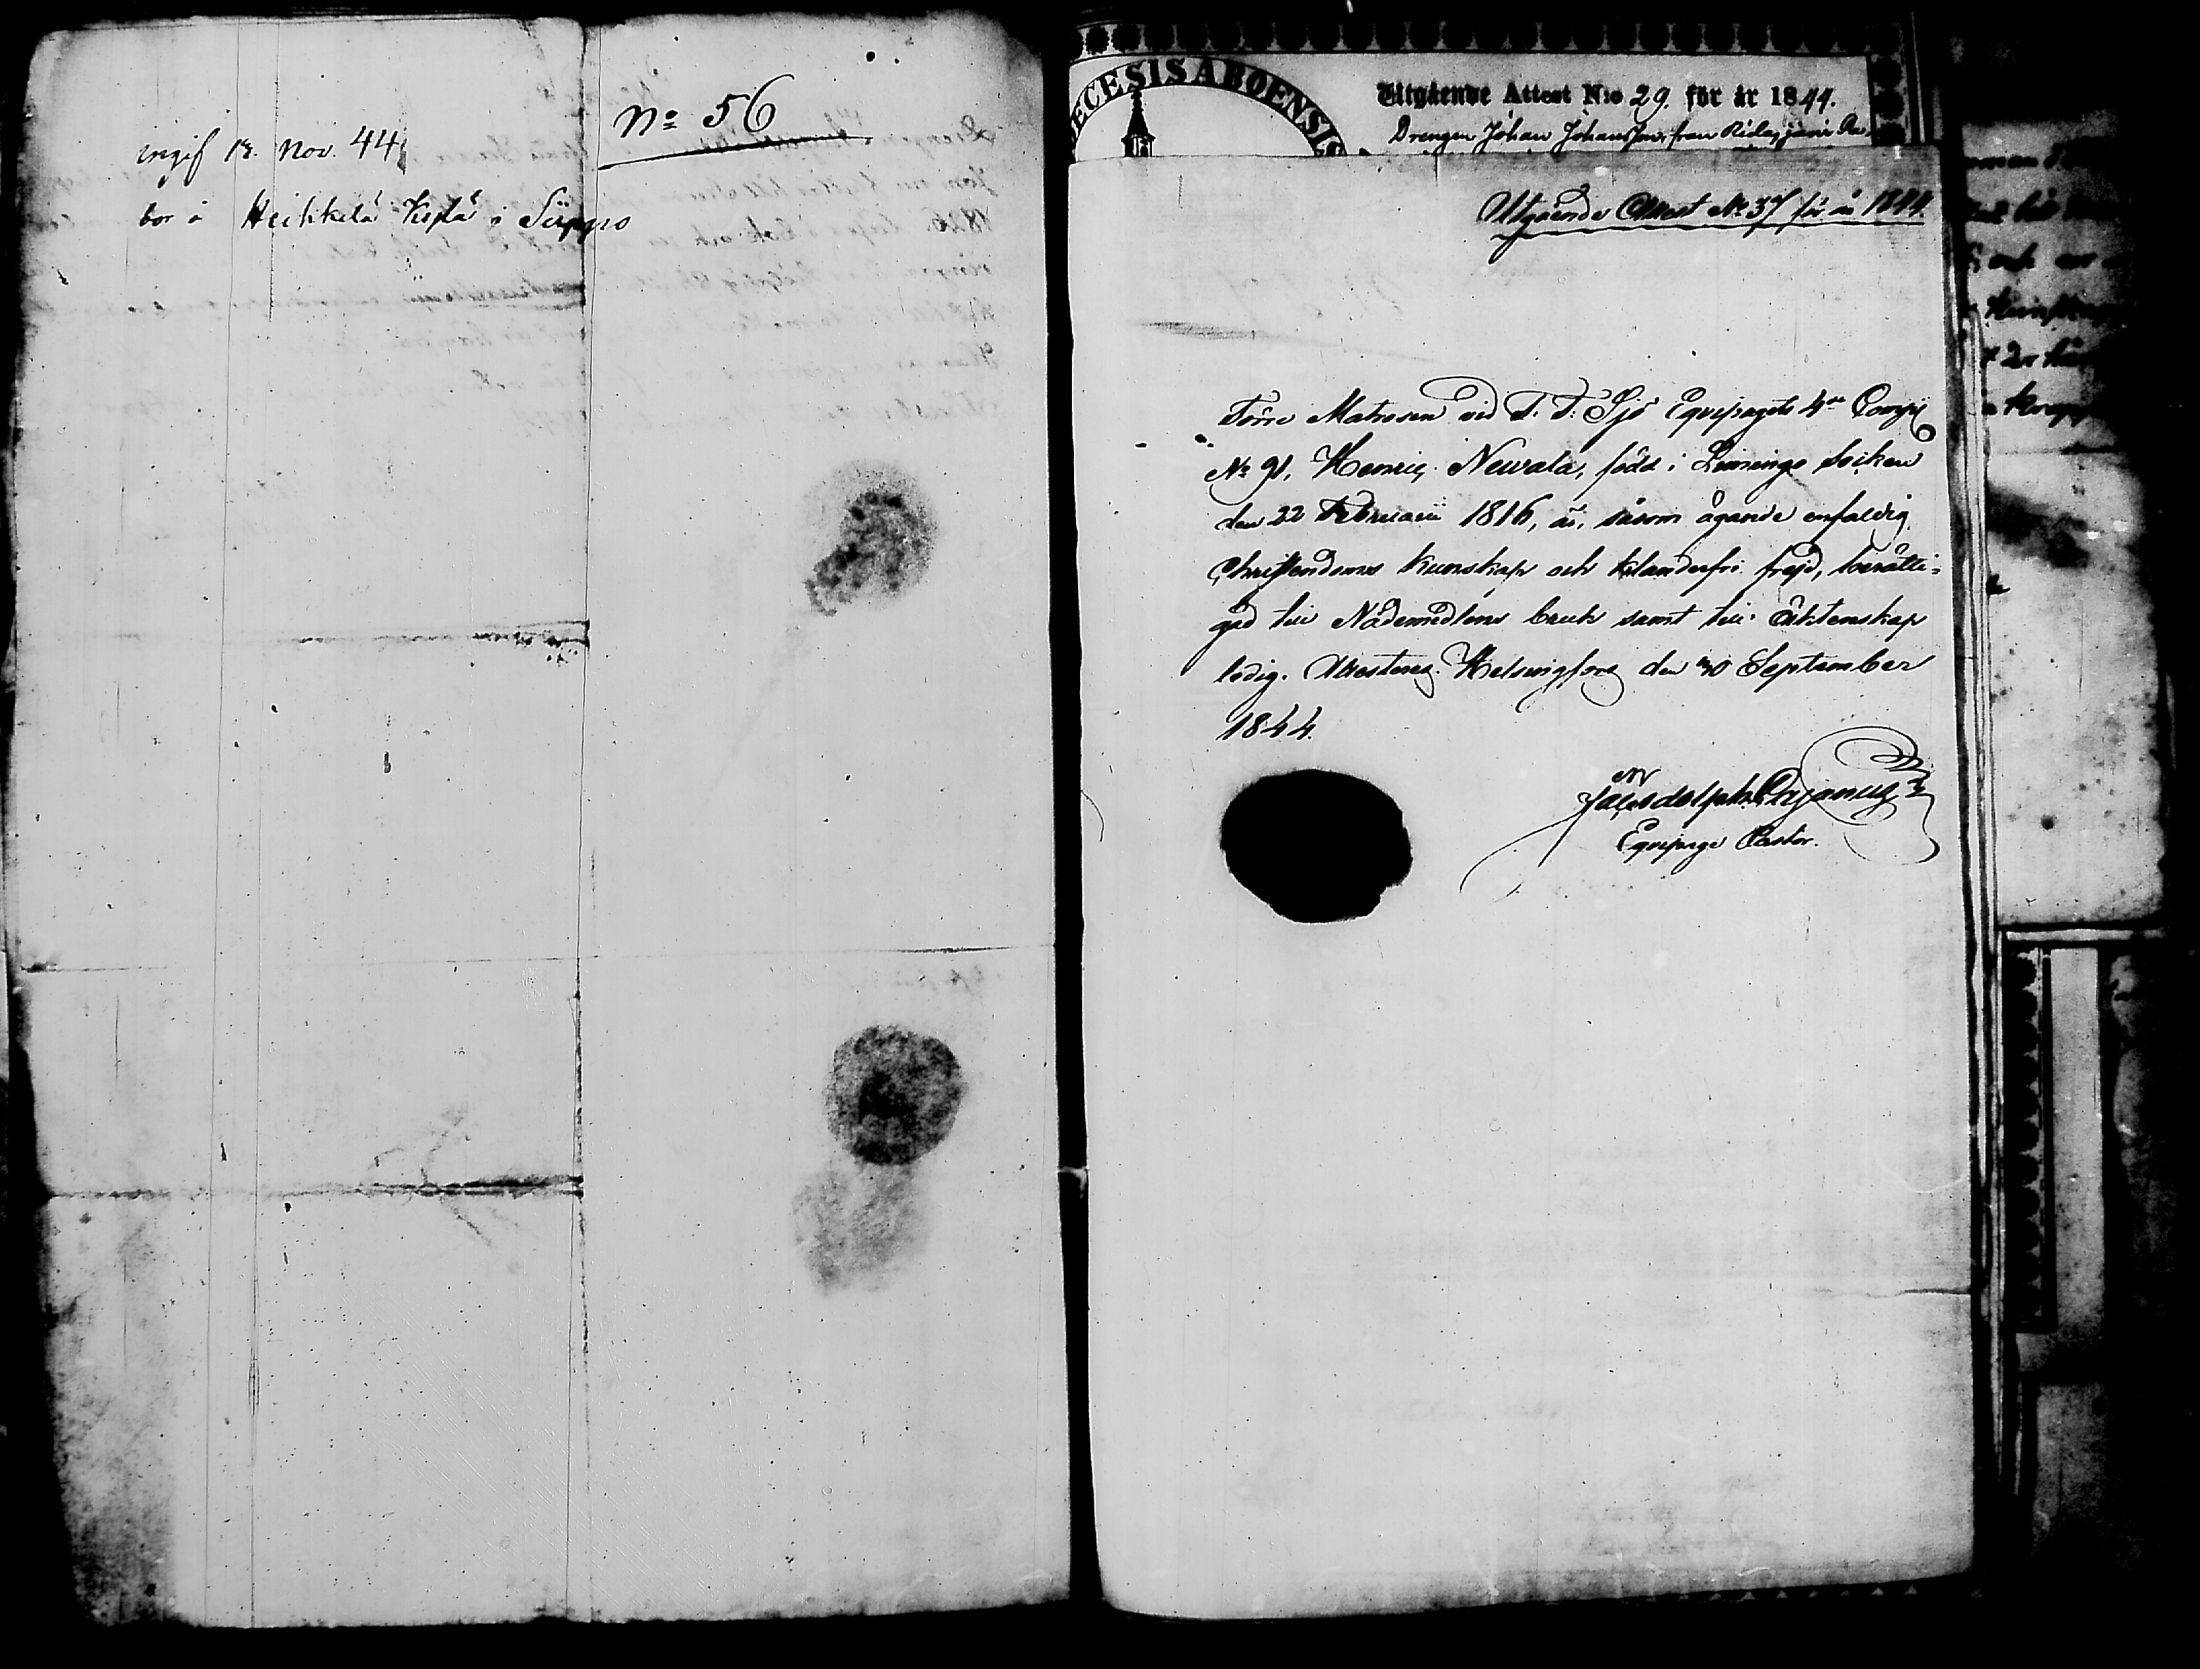 No 56
ingif 13. Nov. 44
bor å Heikkilä Kisälä i Siippo
DECESIS ABOENSIS
Utgående Attest N:o 29. för år 1844.
Drengen Johan Johansson, från
Utgående Attest No 37 för år 1844.
Förre Matrosen vid F. F. Sjö Equipagets 4de Comp:
No 91, Henric Newala, född i Liminge Socken
den 22 Februarii 1816, är, såsom ägande enfaldig
Christendoms kunskap och klanderfri frejd, berätti-
gad till Nådemedlens bruk samt till Äktenskap
ledig. Attesteras. Helsingfors den 30 September
1844.
Equipage Pastor.